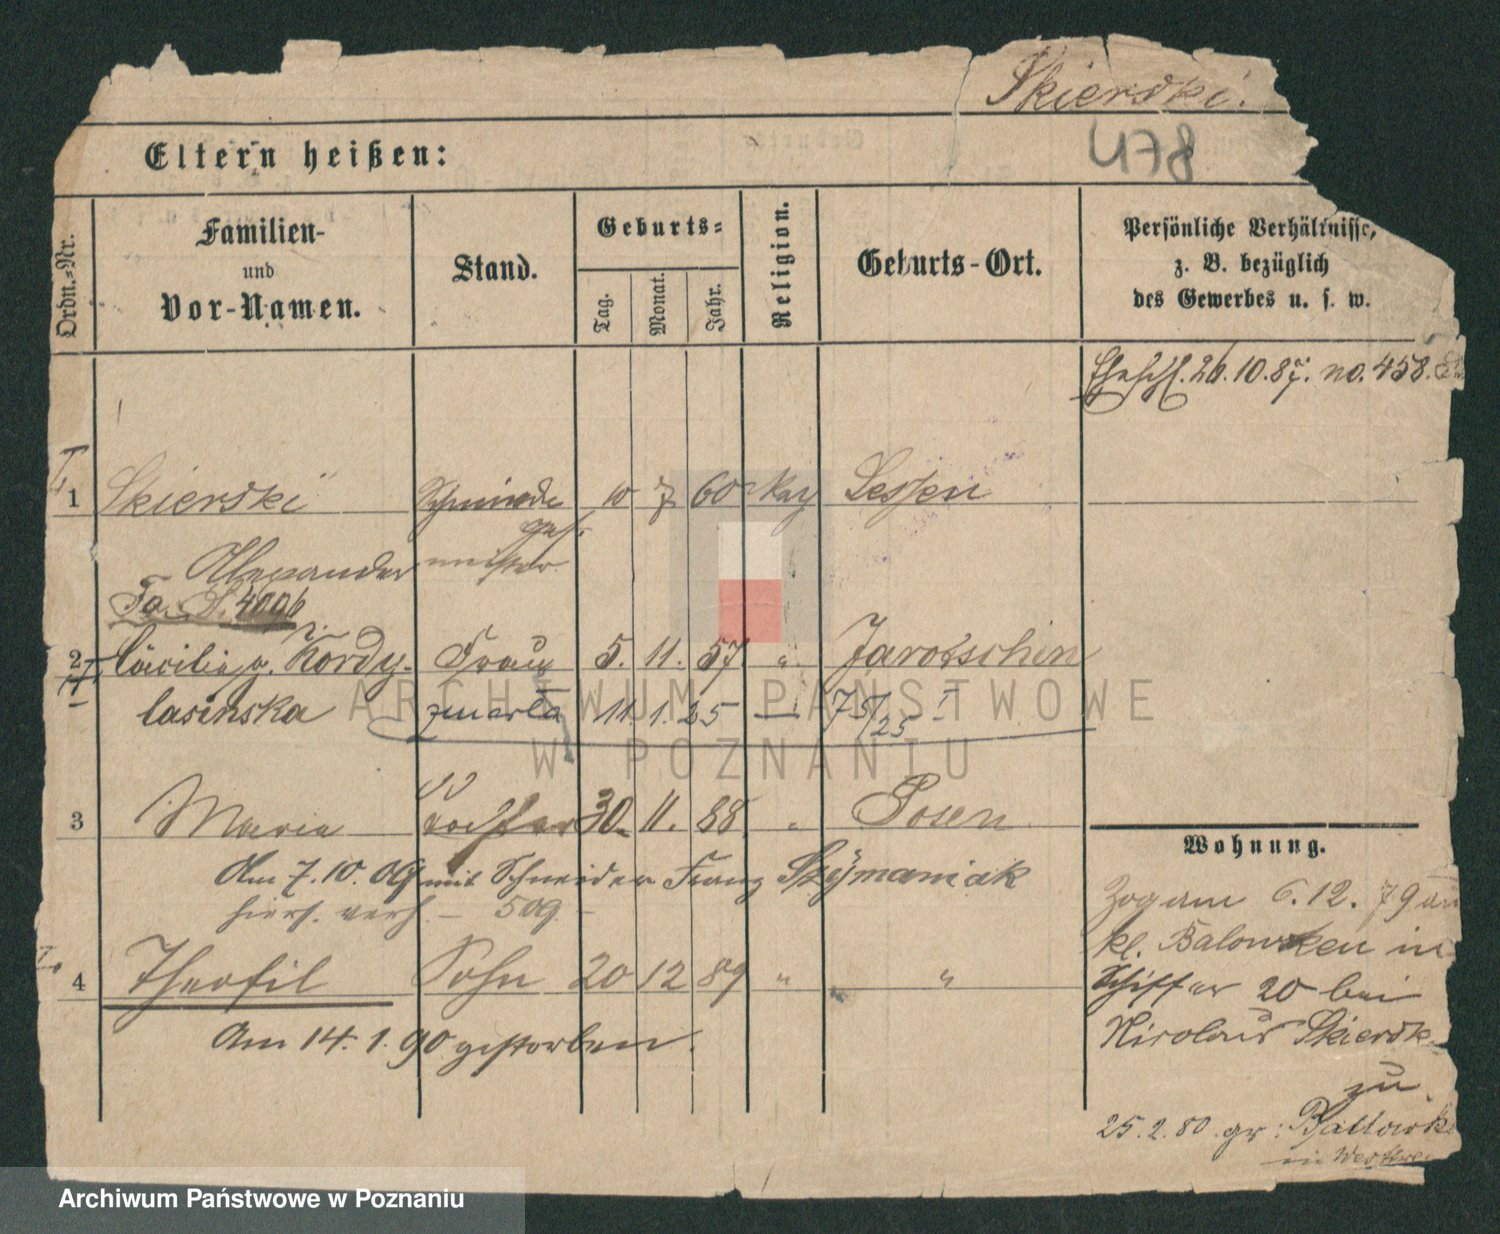 Skierski.
478
Eltern heißen:
Ordn.-Nr.
Familien-
und
Vor-Namen.
Stand.
Geburts-
Tag.
Monat.
Jahr.
Religion.
Geburts-Ort.
Persönliche Verhältnisse,
z. B. bezüglich
des Gewerbes u. s. w.
26.10.87. no. 458.
1 Skierski Schmiede 10 7 60 Kay Lessen
Alexander meister
4006
2 Cäcilie g. Kordy- Frau 5. 11. 57 " Jarotschin
lasinska zmarła 11. 1. 25 — 75/25 I
3 Maria Tochter 30. 11. 88 " Posen
Am 7.10.09 mit Schneider Franz Szymaniak
hiers. verh. – 509 –
4 Theofil Sohn 20 12 89 " "
Am 14.1.90 gestorben.
Wohnung.
Zog am 6.12.79 aus
kl. Balowken in
Schiffer 20 bei
Nicolaus Skiersk
zu
25.2.80 gr:
in
ARCHIWUM PAŃSTWOWE
W POZNANIU
Archiwum Państwowe w Poznaniu